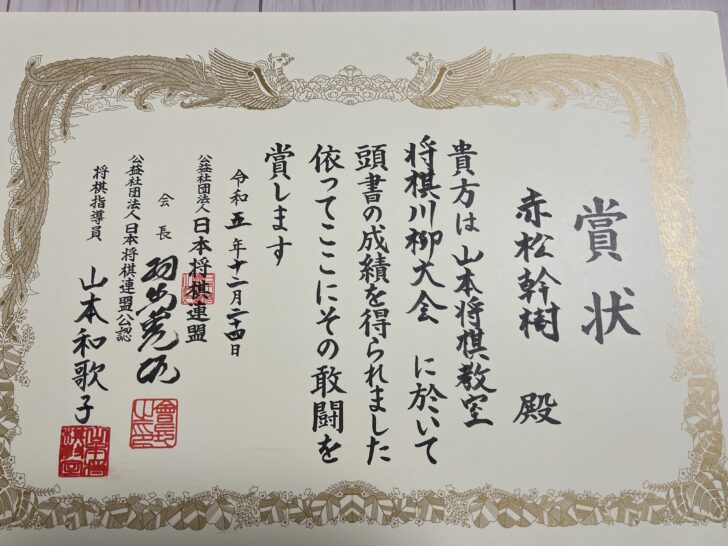 賞状
赤松幹樹 殿
貴方は 山本将棋教室
将棋川柳大会 に於いて
頭書の成績を得られました
依ってここにその敢闘を
賞します
令和五年十二月二十四日
公益社団法人 日本将棋連盟
会長 羽生善治
公益社団法人 日本将棋連盟公認
将棋指導員 山本和歌子